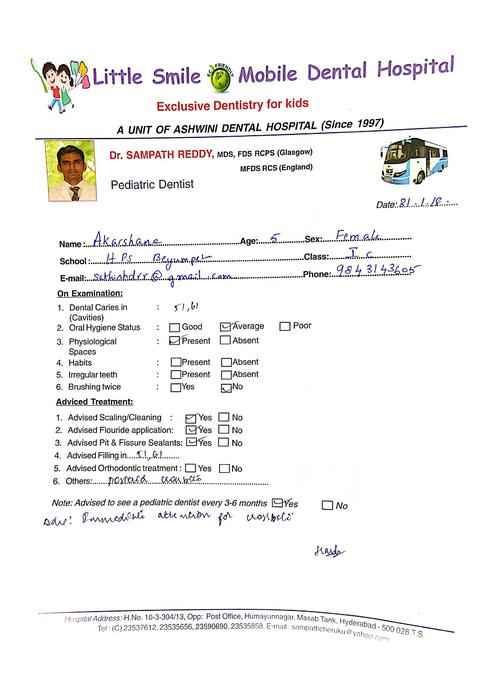 Little Smile Mobile Dental Hospital
ECO FRIENDLY
Exclusive Dentistry for kids
A UNIT OF ASHWINI DENTAL HOSPITAL (Since 1997)
Dr. SAMPATH REDDY, MDS, FDS RCPS (Glasgow)
MFDS RCS (England)
Pediatric Dentist
Date: 1.18
Name: Akarshana Age: 5 Sex: Female
School: HPS Class: I C
E-mail: @gmail.com Phone: 9843143605
On Examination:
1. Dental Caries in : 51,61
(Cavities)
2. Oral Hygiene Status : Good Average Poor
3. Physiological : Present Absent
Spaces
4. Habits : Present Absent
5. Irregular teeth : Present Absent
6. Brushing twice : Yes No
Adviced Treatment:
1. Advised Scaling/Cleaning : Yes No
2. Advised Flouride application: Yes No
3. Advised Pit & Fissure Sealants: Yes No
4. Advised Filling in 51,61
5. Advised Orthodontic treatment : Yes No
6. Others:
Note: Advised to see a pediatric dentist every 3-6 months Yes No
adv: Immediate attention for
Hospital Address: H.No. 10-3-304/13, Opp: Post Office, Humayunnagar, Masab Tank, Hyderabad - 500 028 T.S.
Tel : (C) 23537612, 23535656, 23590690, 23535858. E-mail: sampathcheruku@yahoo.com